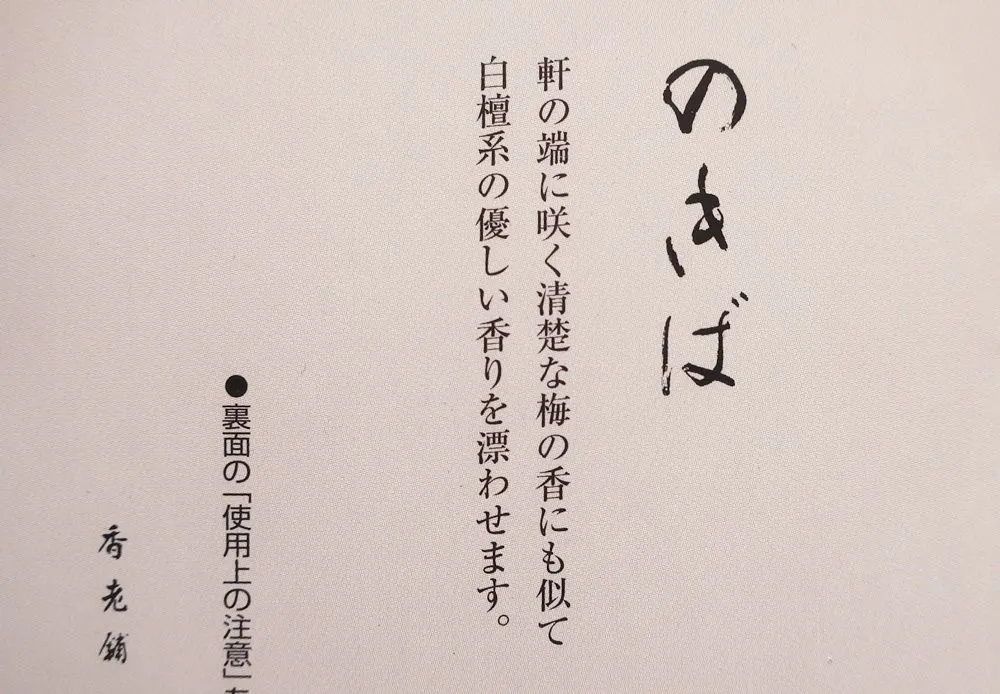 のきば
軒の端に咲く清楚な梅の香にも似て
白檀系の優しい香りを漂わせます。
●裏面の「使用上の注意」を
香老舗